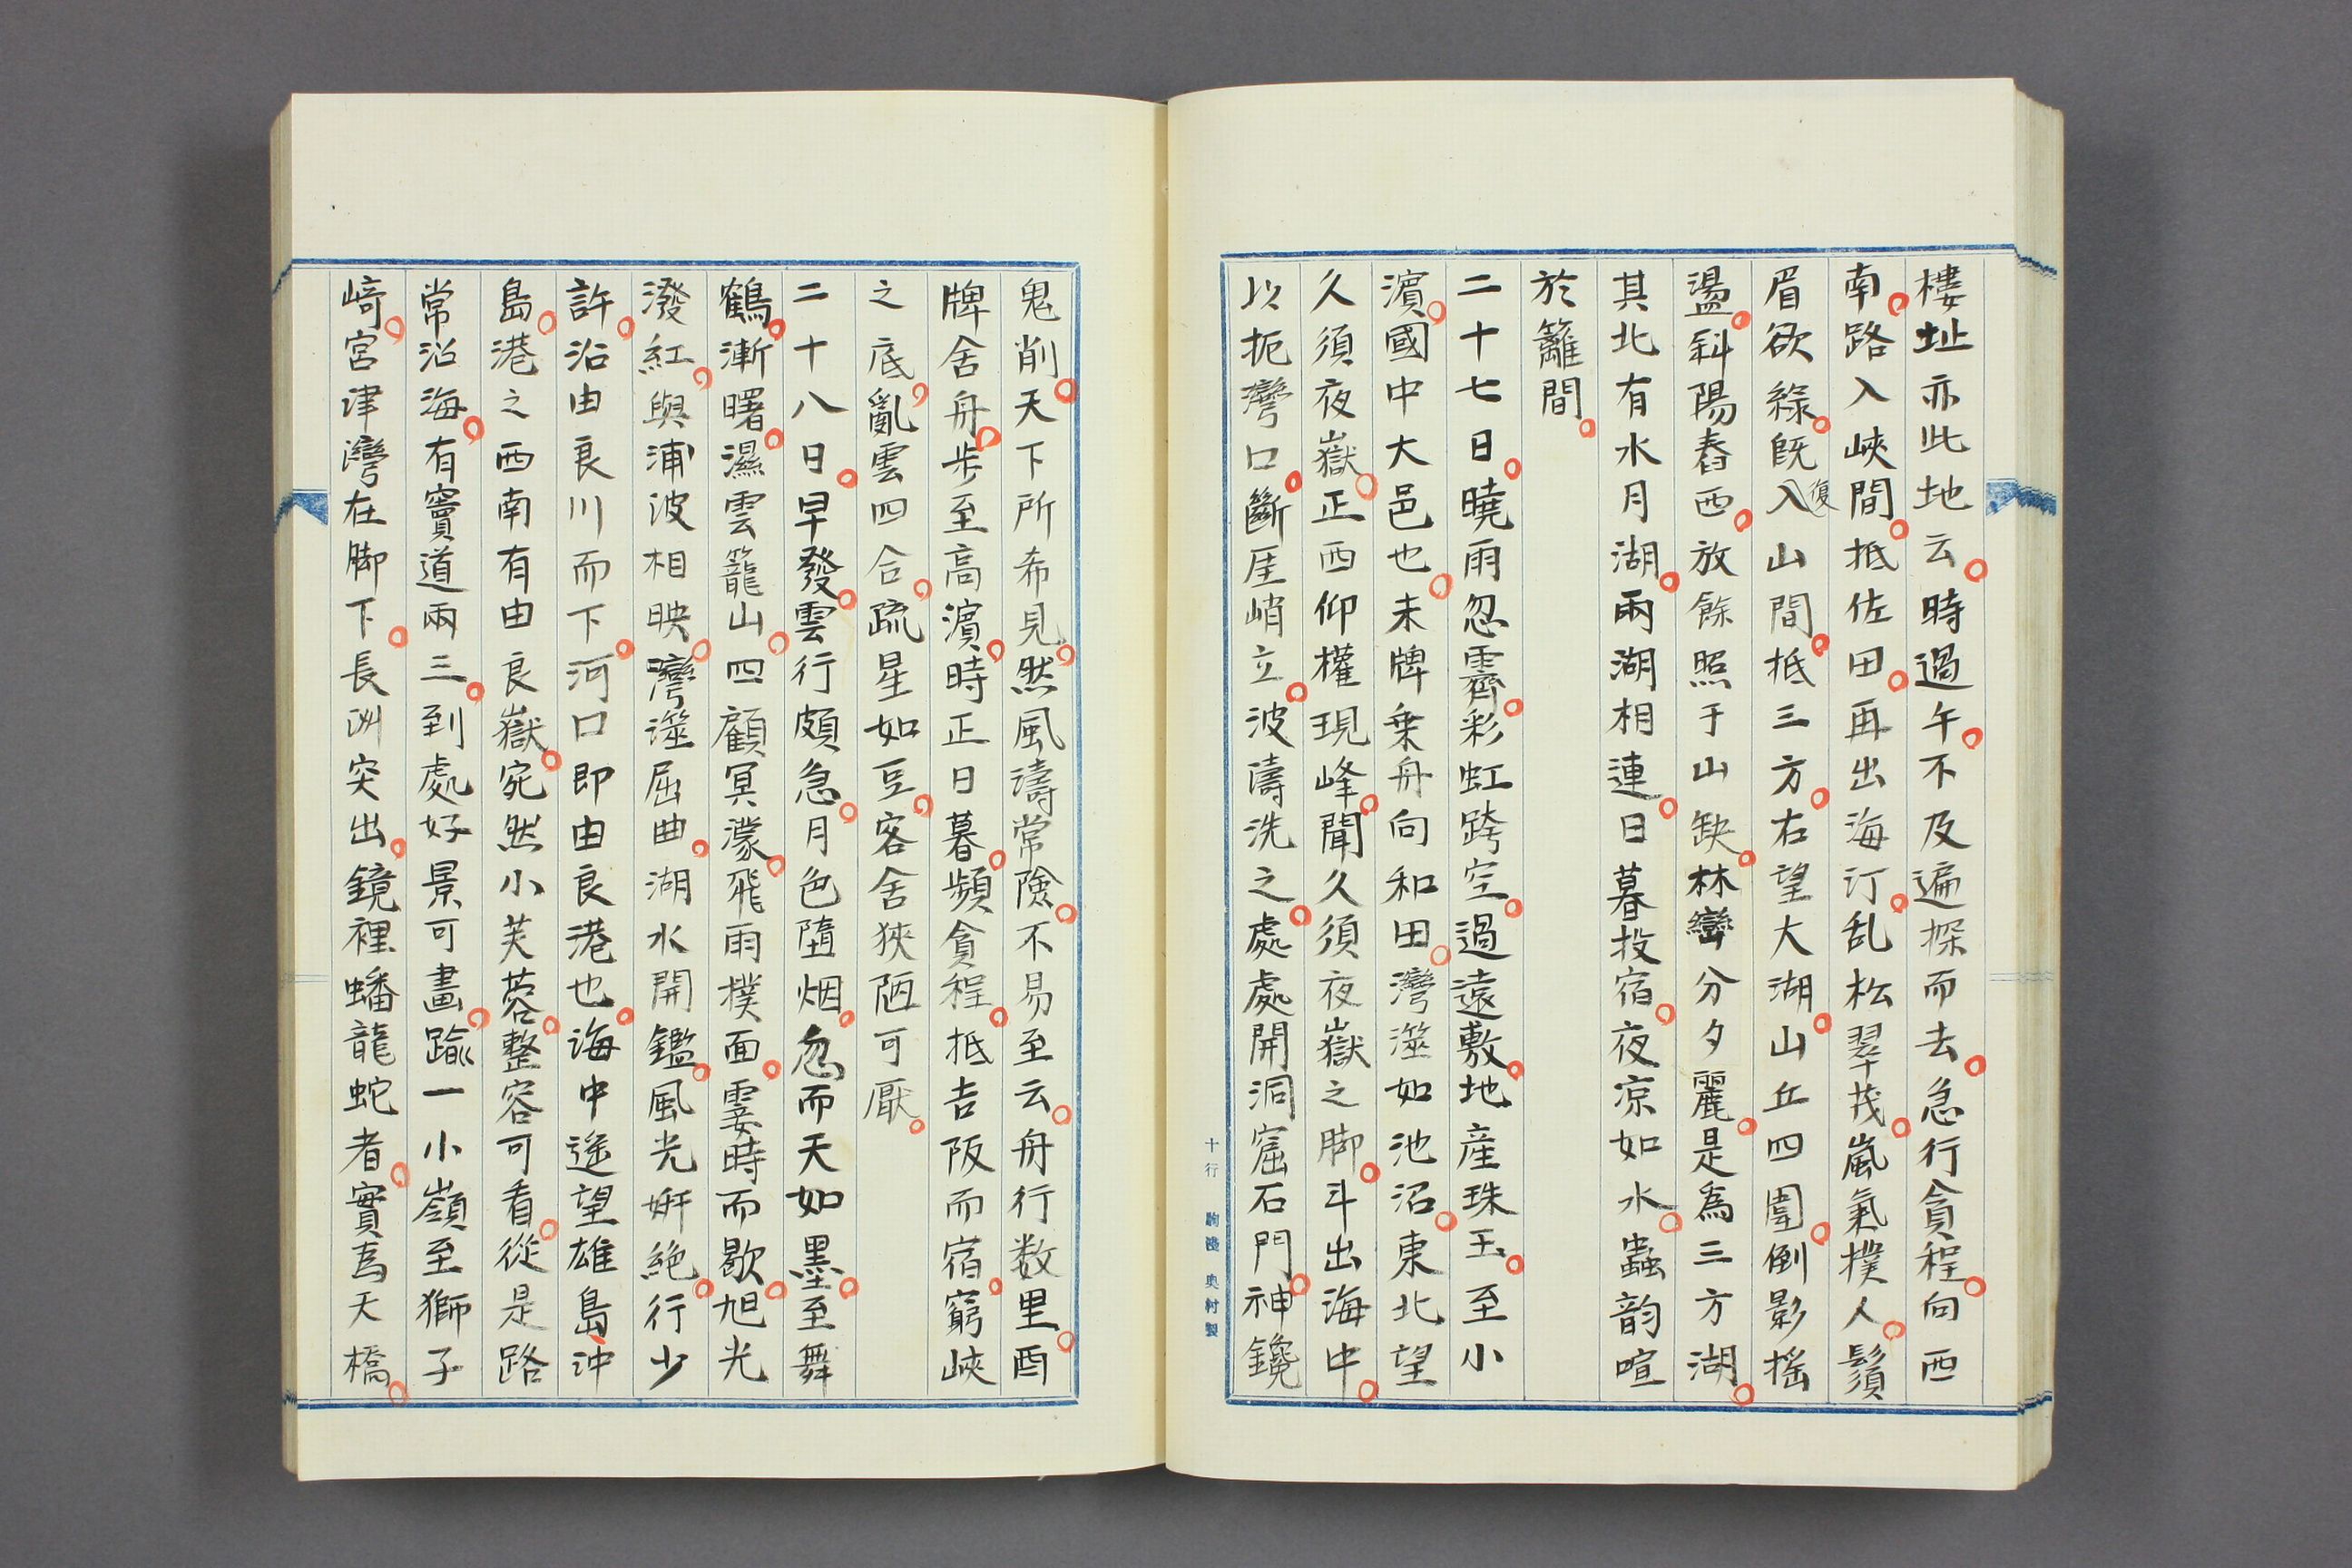 樓址亦此地云。時過午。不及遍探而去。急行貪程。向西
南。路入峽間。抵佐田。再出海汀。乱松翠茂。嵐氣撲人。鬚
眉欲綠。既復入山間。抵三方。右望大湖。山丘四圍。倒影搖
盪。斜陽舂西。放餘照于山缺。林巒分夕麗。是為三方湖。
其北有水月湖。兩湖相連。日暮投宿。夜凉如水。蟲韵喧
於籬間。
二十七日。曉雨忽霽。彩虹跨空。過遠敷。地産珠玉。至小
濵。國中大邑也。未牌乗舟向和田。灣澨如池沼。東北望
久須夜嶽。正西仰權現峰。聞久須夜嶽之脚。斗出海中。
以扼灣口。斷厓峭立。波濤洗之。處處開洞窟石門。神鑱
十行 駒陵 奥村製
鬼削。天下所希見。然風濤常險。不易至云。舟行数里。酉
牌舍舟。步至高濵。時正日暮。頻貪程。抵吉阪而宿。窮峽
之底。亂雲四合。疏星如豆。客舍狹陋可厭。
二十八日。早發。雲行頗急。月色墮烟。忽而天如墨。至舞
鶴。漸曙。濕雲籠山。四顧冥濛。飛雨撲面。霎時而歇。旭光
潑紅。與浦波相映。灣澨屈曲。湖水開鑑。風光妍絶。行少
許。沿由良川而下。河口即由良港也。海中遥望雄島沖
島。港之西南有由良嶽。宛然小芙蓉。整容可看。從是路
常沿海。有竇道兩三。到處好景可畫。踰一小嶺至獅子
﨑。宮津灣在脚下。長洲突出。鏡裡蟠龍蛇者。實爲天橋。